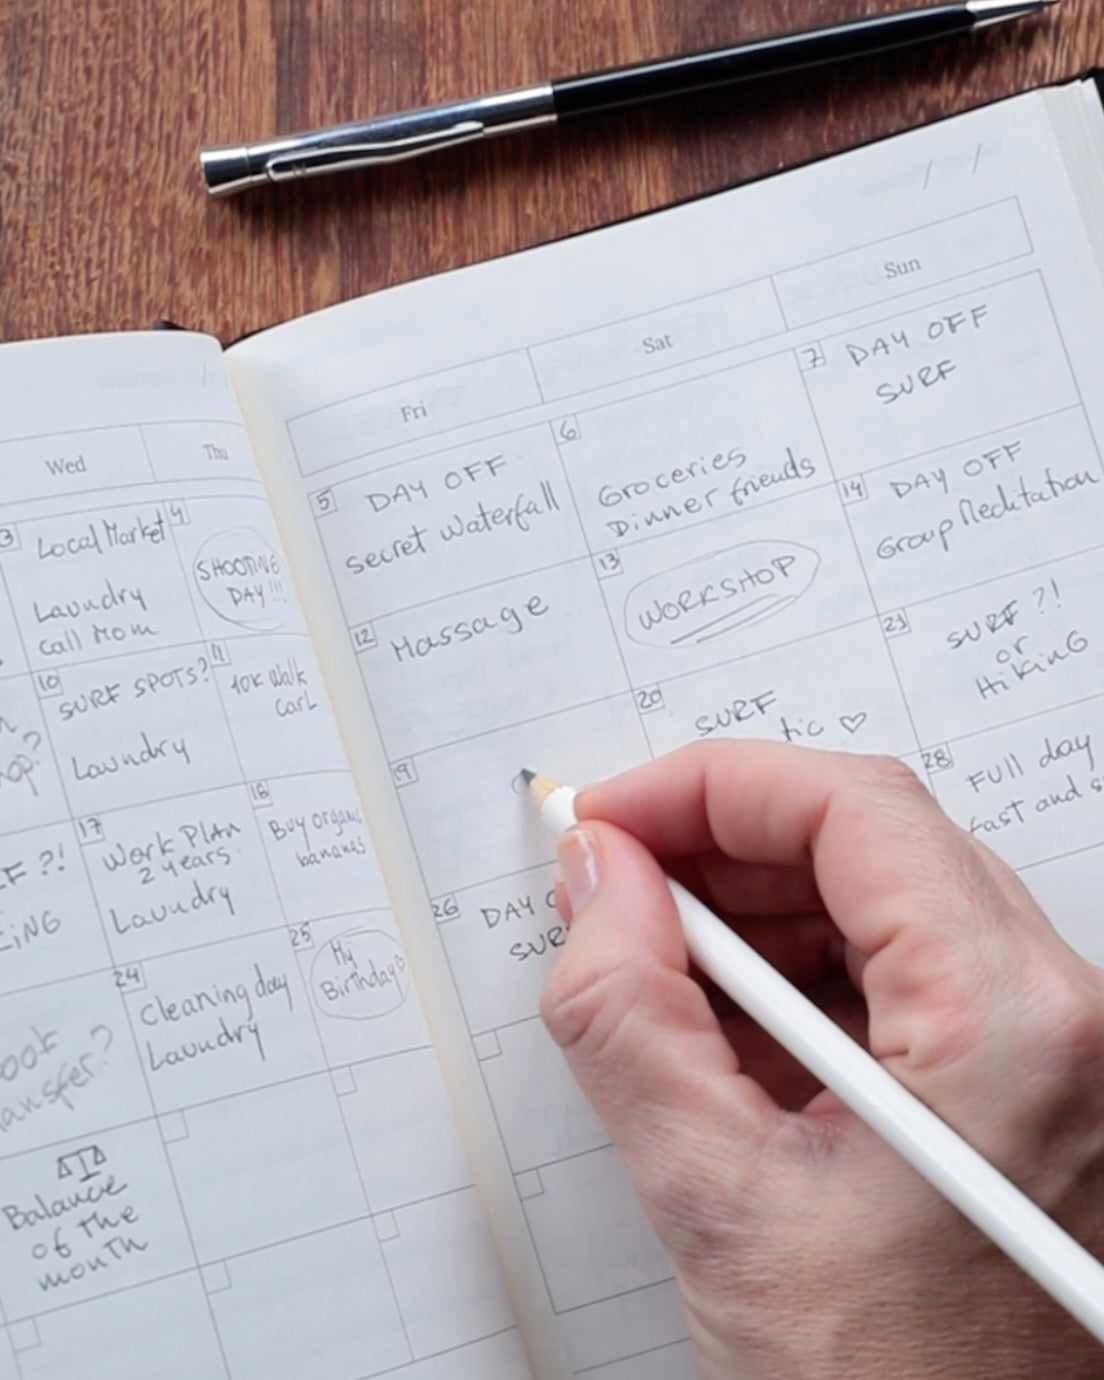 Wed
Thu
Fri
Sat
Sun
3
Local Market
Laundry
Call Mom
4
SHOOTING
DAY!!!
5
DAY OFF
Secret Waterfall
6
Groceries
Dinner friends
7
DAY OFF
SURF
10
SURF SPOTS?
Laundry
11
10K Walk
CarL
12
Massage
13
WORKSHOP
14
DAY OFF
Group Meditation
?!
17
Work PLAN
2 years.
Laundry
18
Buy organic
bananas
19
20
SURF
tic ♡
21
SURF ?!
or
HiKiNG
24
Cleaning day
Laundry
25
My
Birthday♡
26
DAY
SUR
28
Full day
fast and
Balance
of the
month